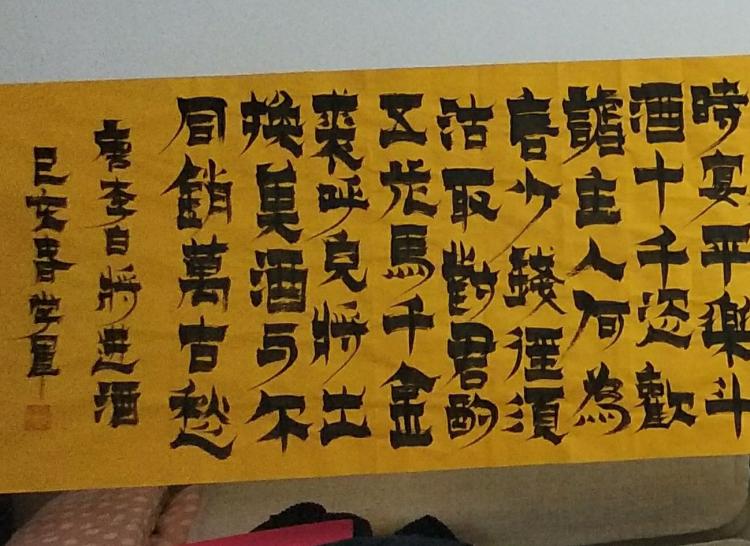 時宴平樂斗
酒十千恣歡
謔主人何為
言少錢徑須
沽取對君酌
五花馬千金
裘呼兒將出
換美酒与尔
同銷萬古愁
唐李白將進酒
己亥春